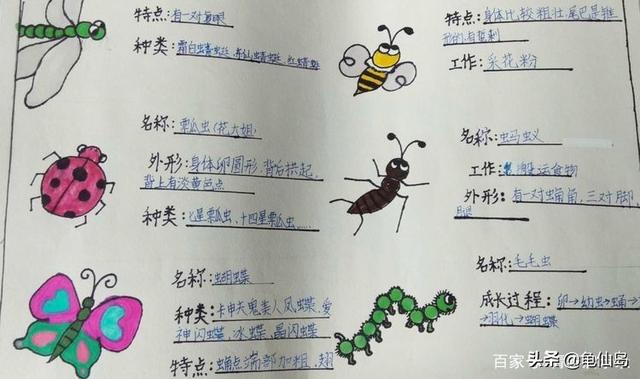 特点:有一对复眼
种类:霜白蜻蜓、赤仙蜻蜓、红蜻蜓
特点:身体比较粗壮,尾巴是锥
形的,有蜇刺
工作:采花粉
名称:瓢瓜虫(花大姐)
外形:身体卵圆形,背后拱起,
背上有淡黄或点
种类:七星瓢瓜虫、十四星瓢瓜虫、……
名称:虫马虫义
工作:搬运食物
外形:有一对触角角,三对脚
腿
名称:蝴蝶
种类:卡申夫鬼美人凤蝶、爱
神闪蝶、冰蝶、晶闪蝶
特点:触点端部加粗,翅
名称:毛毛虫
成长过程:卵→幼虫→蛹→
→羽化→蝴蝶
百家
头条@龟仙岛